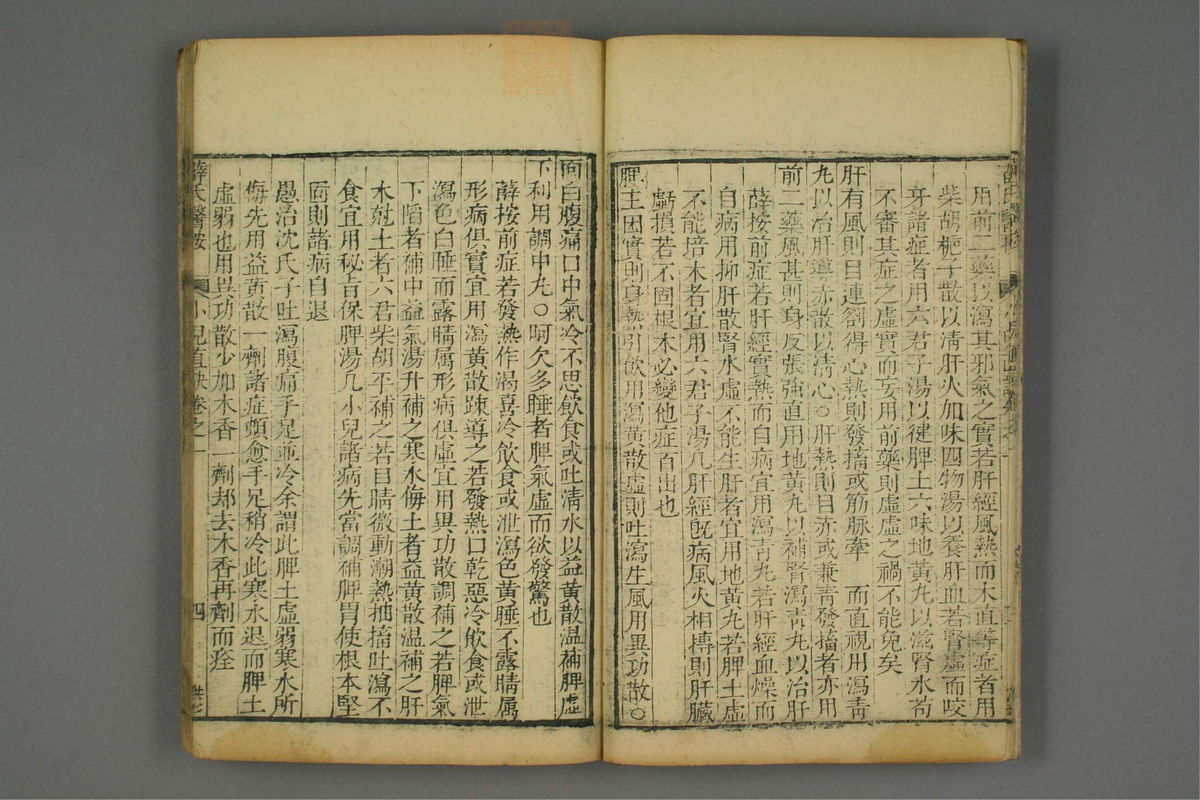 用前二藥以瀉其邪氣之實若肝經風熱而木直等症者用
柴胡梔子散以清肝火加味四物湯以養肝血若腎虛而咬
牙諸症者用六君子湯以健脾土六味地黃丸以滋腎水苟
不審其症之虛實而妄用前藥則虛虛之禍不能免矣
肝有風則目連劄得心熱則發搐或筋脉牽 而直視用瀉青
丸以治肝導赤散以清心○肝熱則目赤或兼青發搐者亦用
前二藥風甚則身反張強直用地黃丸以補腎瀉青丸以治肝
薛按前症若肝經實熱而自病宜用瀉青丸若肝經血燥而
自病用抑肝散腎水虛不能生肝者宜用地黃丸若脾土虛
不能培木者宜用六君子湯凡肝經旣病風火相搏則肝臟
虧損若不固根本必變他症百出也
脾主困實則身熱引飲用瀉黃散虛則吐瀉生風用異功散○
面白腹痛口中氣冷不思飲食或吐清水以益黃散温補脾虛
下利用調中丸○呵欠多睡者脾氣虛而欲發驚也
薛按前症若發熱作渴喜冷飲食或泄瀉色黃睡不露睛属
形病俱實宜用瀉黃散踈導之若發熱口乾惡冷飲食或泄
瀉色白睡而露睛属形病俱虛宜用異功散調補之若脾氣
下䧟者補中益氣湯升補之寒水侮土者益黃散温補之肝
木尅土者六君柴胡平補之若目睛微動潮熱抽搐吐瀉不
食宜用秘旨保脾湯凡小兒諸病先當調補脾胃使根本堅
固則諸病自退
愚治沈氏子吐瀉腹痛手足並冷余謂此脾土虛弱寒水所
侮先用益黃散一劑諸症頓愈手足稍冷此寒水退而脾土
虛弱也用異功散少加木香一劑却去木香再劑而痊
薛氏醫按 小兒直訣卷之一 四